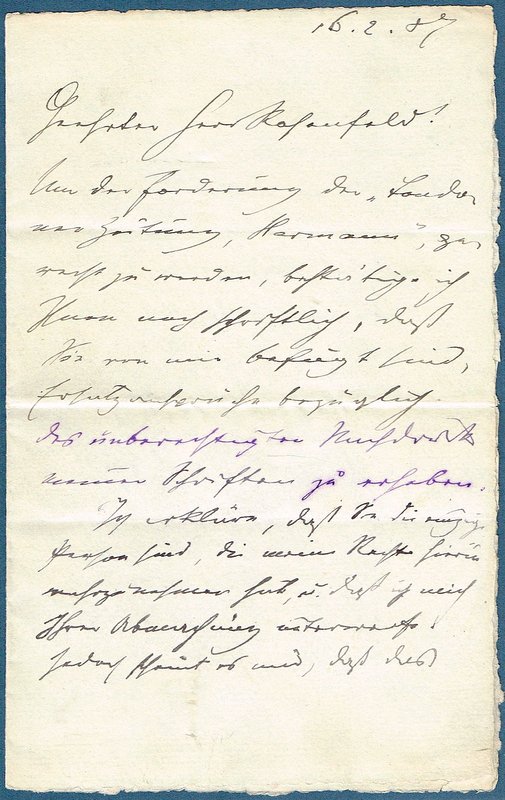 16.2.87
Geehrter Herr Rosenfeld!
Um der Forderung der „Londo-
ner Zeitung, Hermann“, ge-
recht zu werden, bestätige ich
Ihnen noch schriftlich, daß
Sie von mir befugt sind,
Ersatzansprüche bezüglich
des unberechtigten Nachdrucks
meiner Schriften zu erheben.
Ich erkläre, daß Sie die einzige
Person sind, die meine Rechte hierin
wahrzunehmen hat, u. daß ich mich
Ihrer Abmachung unterwerfe.
Jedoch scheint es mir, daß dies